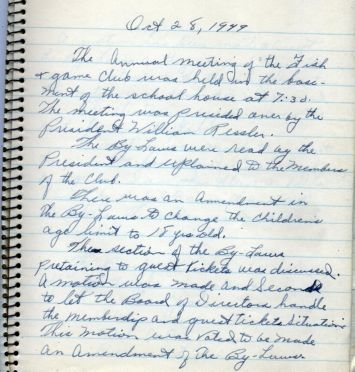 Oct 28, 1949
The Annual meeting of the Fish
& game Club was held in the base-
ment of the school house at 7:30.
The meeting was presided over by the
President William Ressler.
The By-Laws were read by the
President and explained to the Members
of the Club.
There was an Amendment in
the By-Laws to change the Childrens
age limit to 18 yrs old.
The section of the By-Laws
pretaining to guest tickets was discussed.
A motion was made and Second
to let the Board of Directors handle
the membership and guest tickets situation
This motion was voted to be made
an Amendment of the By-Laws